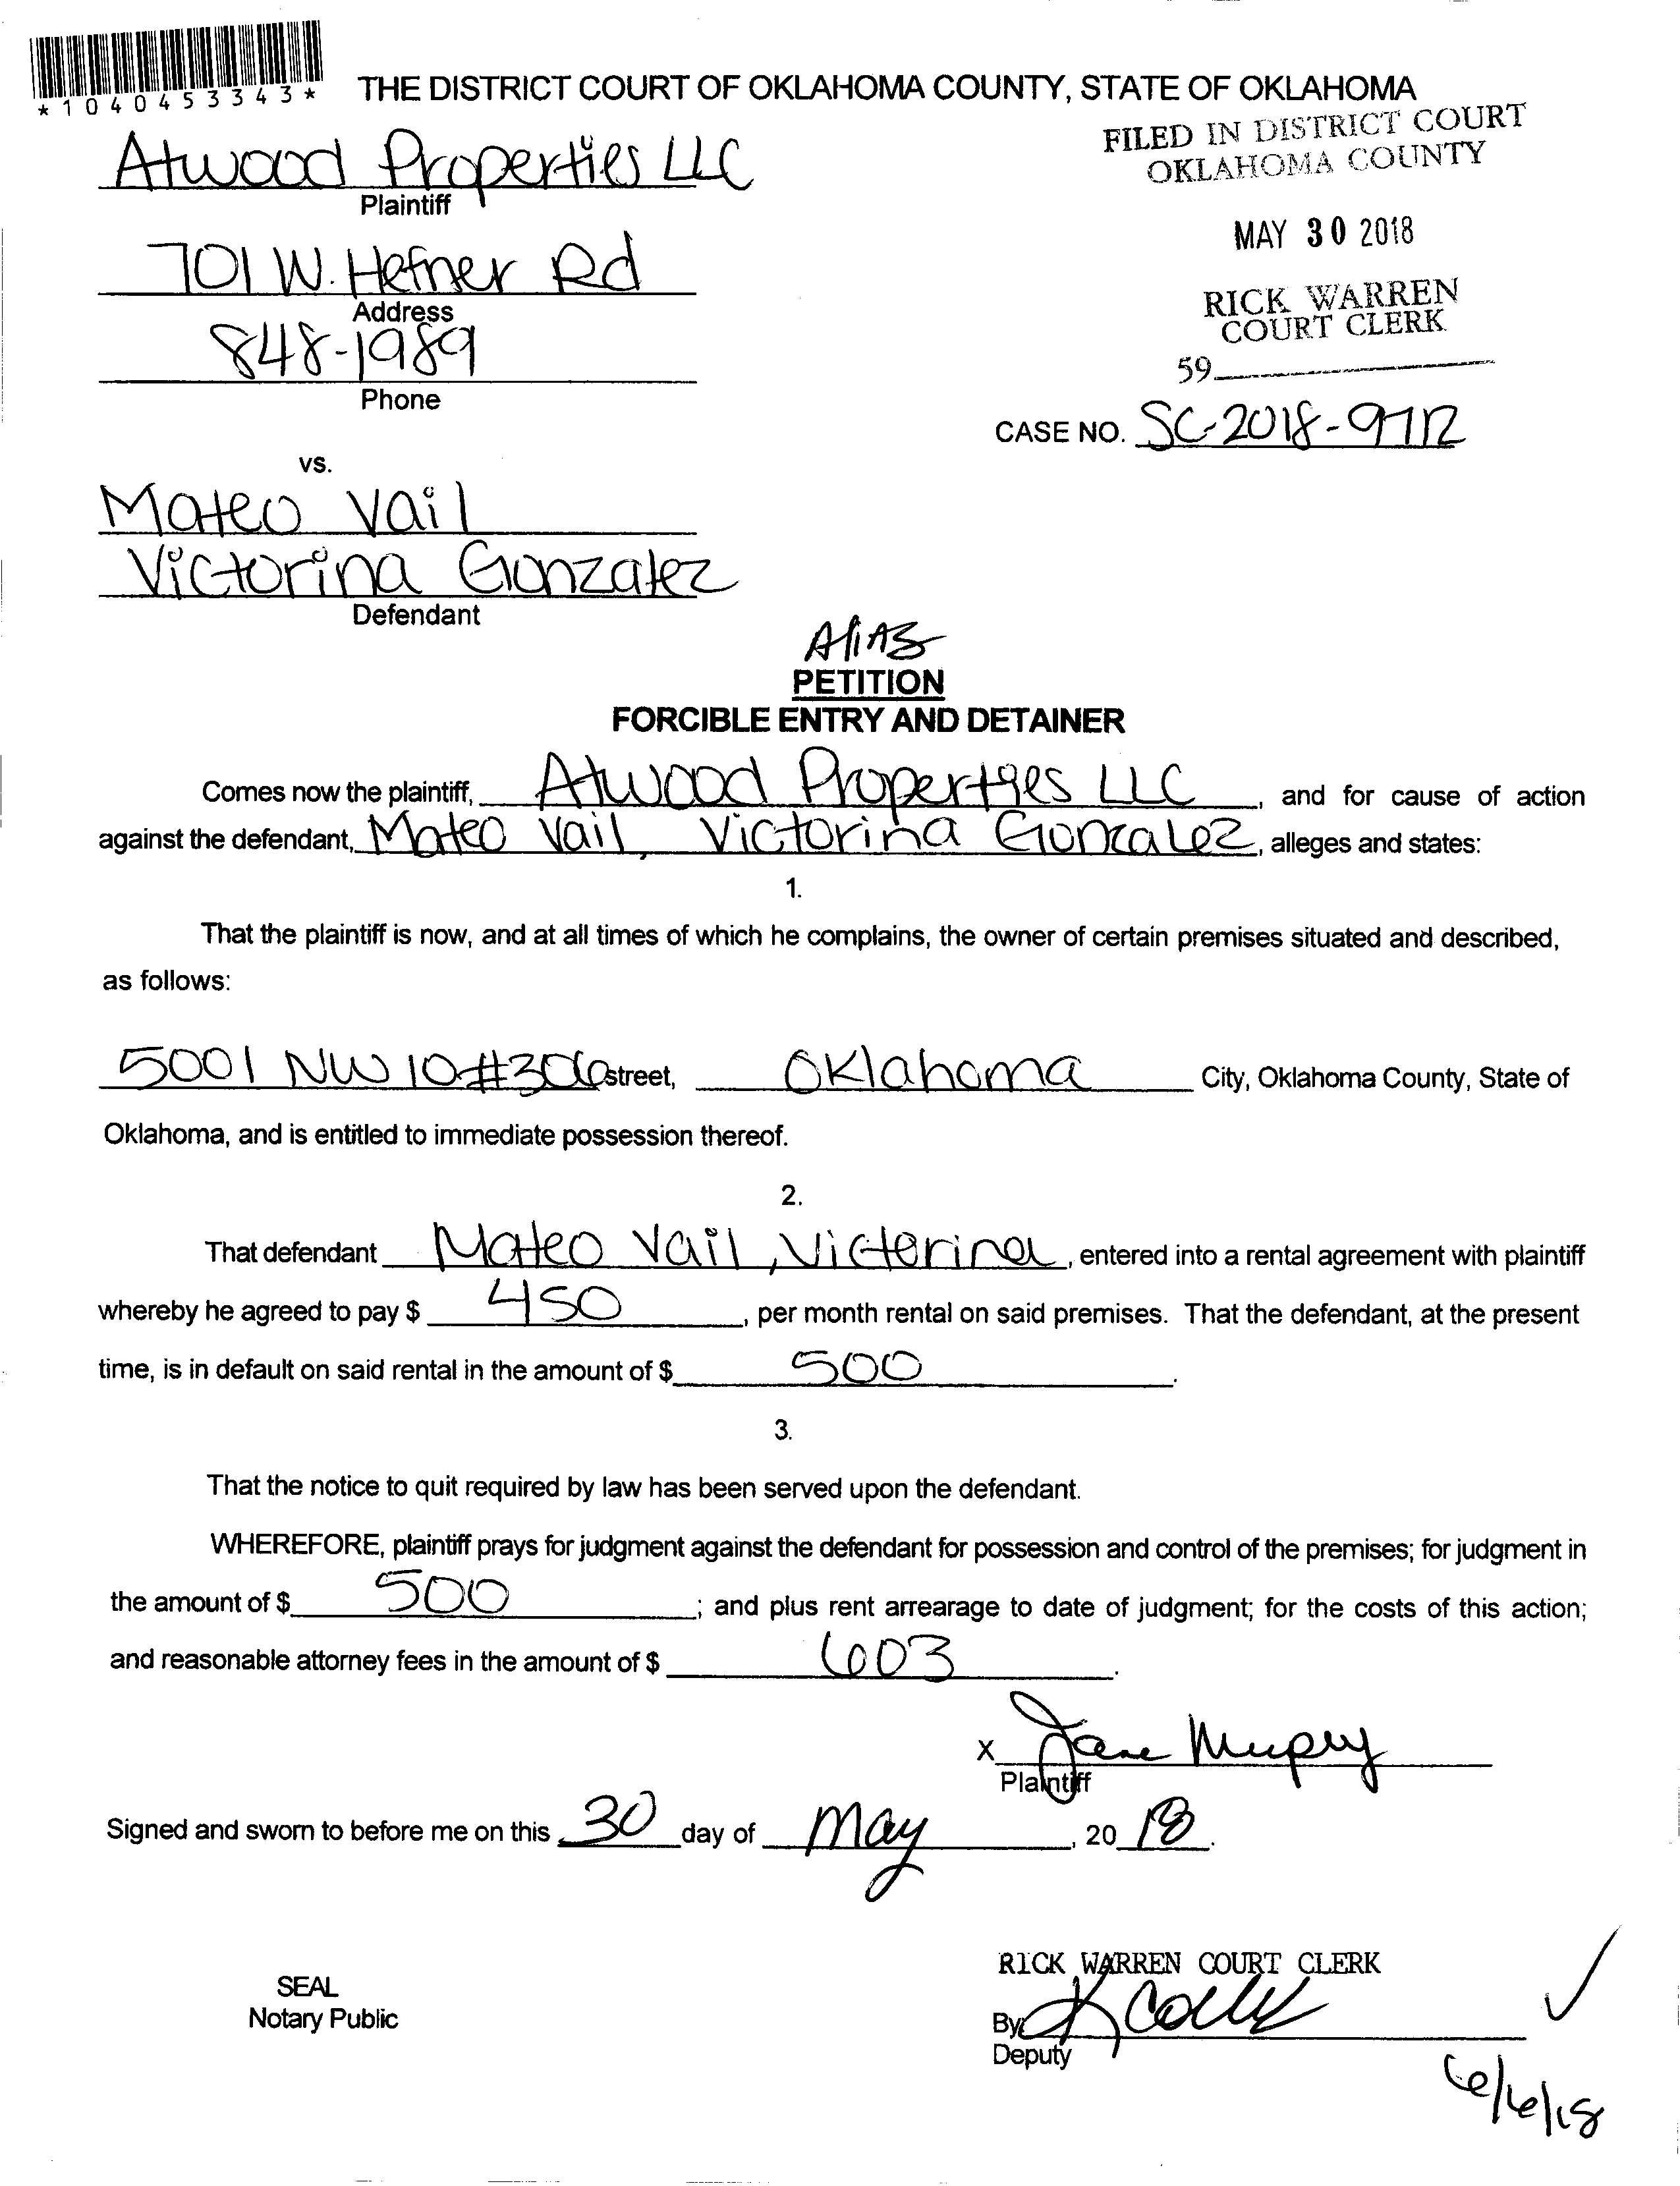 *1040453343*
THE DISTRICT COURT OF OKLAHOMA COUNTY, STATE OF OKLAHOMA
FILED IN DISTRICT COURT
OKLAHOMA COUNTY
Atwood Properties LLC
Plaintiff
MAY 30 2018
701 W. Hefner Rd
Address
RICK WARREN
COURT CLERK
848-1989
Phone
59
CASE NO. SC-2018-9712
vs.
Mateo Vail
Victorina Gonzalez
Defendant
Alias
PETITION
FORCIBLE ENTRY AND DETAINER
Comes now the plaintiff, Atwood Properties LLC, and for cause of action
against the defendant, Mateo Vail, Victorina Gonzalez, alleges and states:
1.
That the plaintiff is now, and at all times of which he complains, the owner of certain premises situated and described,
as follows:
5001 NW 10 #306 street, Oklahoma City, Oklahoma County, State of
Oklahoma, and is entitled to immediate possession thereof.
2.
That defendant Mateo Vail, Victorina, entered into a rental agreement with plaintiff
whereby he agreed to pay $ 450, per month rental on said premises. That the defendant, at the present
time, is in default on said rental in the amount of $ 500.
3.
That the notice to quit required by law has been served upon the defendant.
WHEREFORE, plaintiff prays for judgment against the defendant for possession and control of the premises; for judgment in
the amount of $ 500; and plus rent arrearage to date of judgment; for the costs of this action;
and reasonable attorney fees in the amount of $ 603.
X Jane Mupry
Plaintiff
Signed and sworn to before me on this 30 day of May, 20 18.
RICK WARREN COURT CLERK
SEAL
Notary Public
By:
Deputy
6/6/18